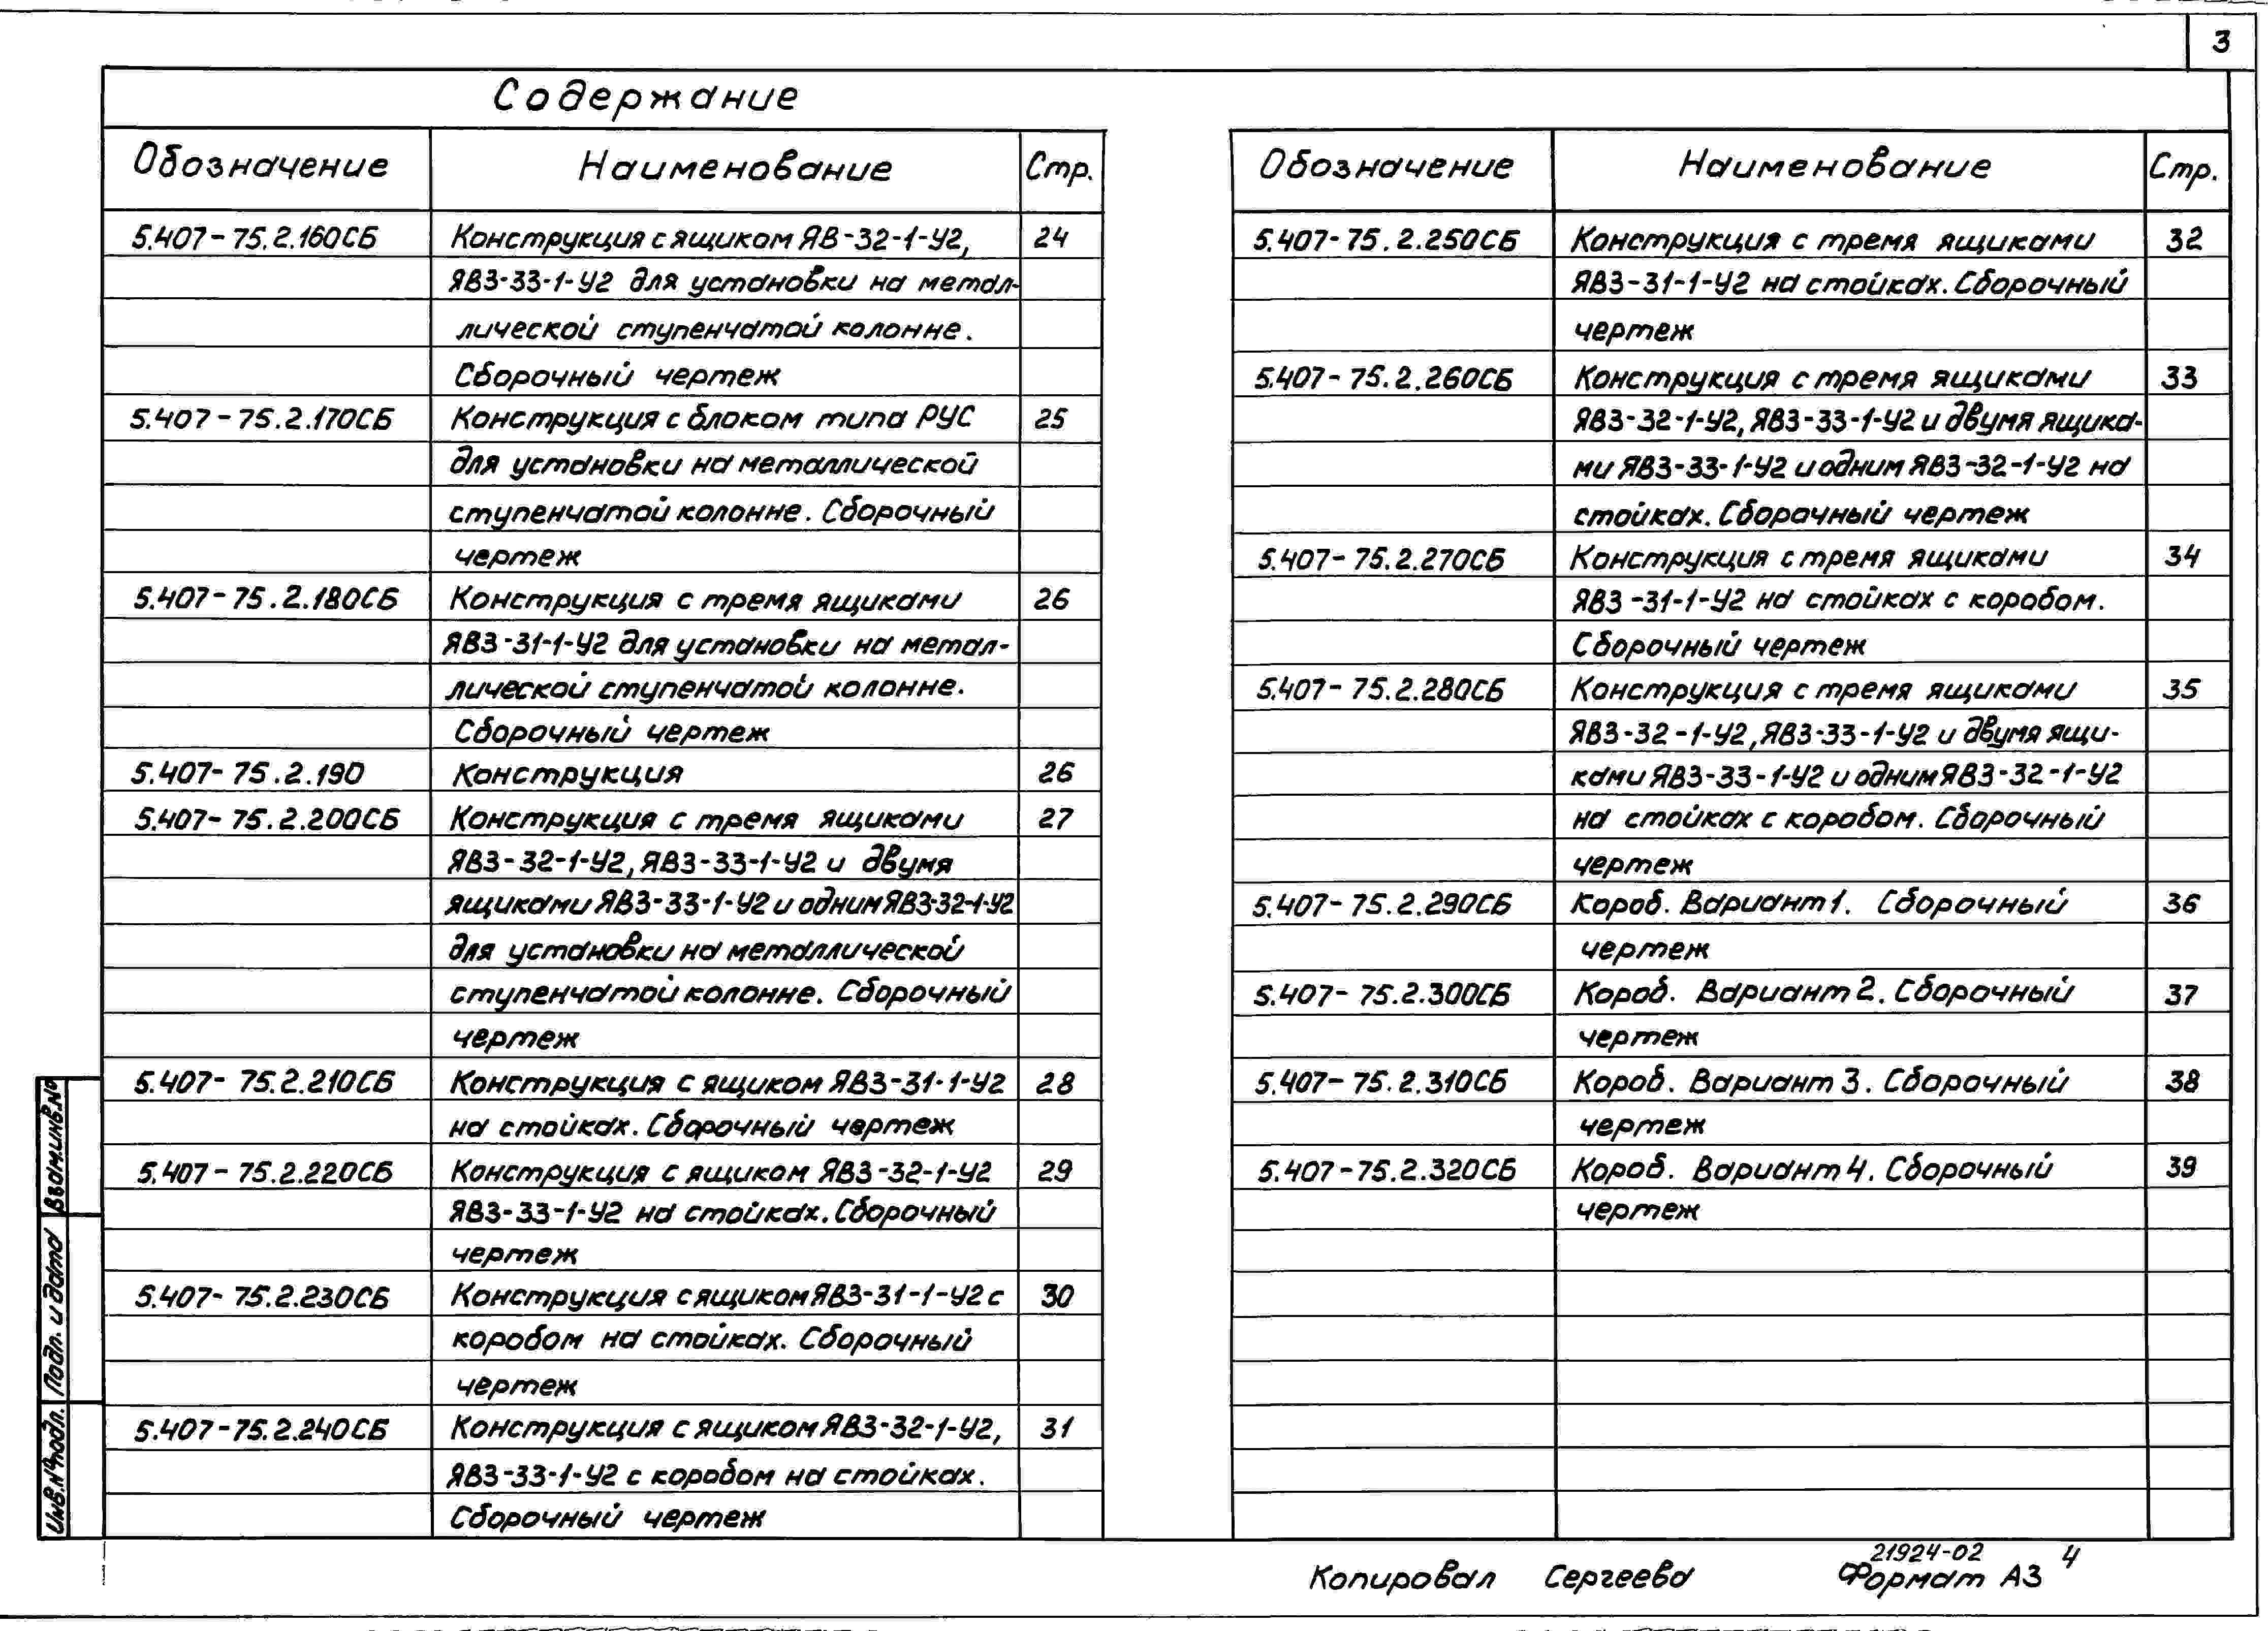 3
Содержание
Обозначение Наименование Стр.
5.407-75.2.160СБ Конструкция с ящиком ЯВ-32-1-У2, 24
ЯВЗ-33-1-У2 для установки на метал-
лической ступенчатой колонне.
Сборочный чертеж
5.407-75.2.170СБ Конструкция с блоком типа РУС 25
для установки на металлической
ступенчатой колонне. Сборочный
чертеж
5.407-75.2.180СБ Конструкция с тремя ящиками 26
ЯВЗ-31-1-У2 для установки на метал-
лической ступенчатой колонне.
Сборочный чертеж
5.407-75.2.190 Конструкция 26
5.407-75.2.200СБ Конструкция с тремя ящиками 27
ЯВЗ-32-1-У2, ЯВЗ-33-1-У2 и двумя
ящиками ЯВЗ-33-1-У2 и одним ЯВЗ-32-1-У2
для установки на металлической
ступенчатой колонне. Сборочный
чертеж
5.407-75.2.210СБ Конструкция с ящиком ЯВЗ-31-1-У2 28
на стойках. Сборочный чертеж
5.407-75.2.220СБ Конструкция с ящиком ЯВЗ-32-1-У2 29
ЯВЗ-33-1-У2 на стойках. Сборочный
чертеж
5.407-75.2.230СБ Конструкция с ящиком ЯВЗ-31-1-У2 с 30
коробом на стойках. Сборочный
чертеж
5.407-75.2.240СБ Конструкция с ящиком ЯВЗ-32-1-У2, 31
ЯВЗ-33-1-У2 с коробом на стойках.
Сборочный чертеж
Обозначение Наименование Стр.
5.407-75.2.250СБ Конструкция с тремя ящиками 32
ЯВЗ-31-1-У2 на стойках. Сборочный
чертеж
5.407-75.2.260СБ Конструкция с тремя ящиками 33
ЯВЗ-32-1-У2, ЯВЗ-33-1-У2 и двумя ящика-
ми ЯВЗ-33-1-У2 и одним ЯВЗ-32-1-У2 на
стойках. Сборочный чертеж
5.407-75.2.270СБ Конструкция с тремя ящиками 34
ЯВЗ-31-1-У2 на стойках с коробом.
Сборочный чертеж
5.407-75.2.280СБ Конструкция с тремя ящиками 35
ЯВЗ-32-1-У2, ЯВЗ-33-1-У2 и двумя ящи-
ками ЯВЗ-33-1-У2 и одним ЯВЗ-32-1-У2
на стойках с коробом. Сборочный
чертеж
5.407-75.2.290СБ Короб. Вариант 1. Сборочный 36
чертеж
5.407-75.2.300СБ Короб. Вариант 2. Сборочный 37
чертеж
5.407-75.2.310СБ Короб. Вариант 3. Сборочный 38
чертеж
5.407-75.2.320СБ Короб. Вариант 4. Сборочный 39
чертеж
Взам.инв.№
Подп. и дата
Инв.№подл.
21924-02 4
Копировал Сергеева Формат А3